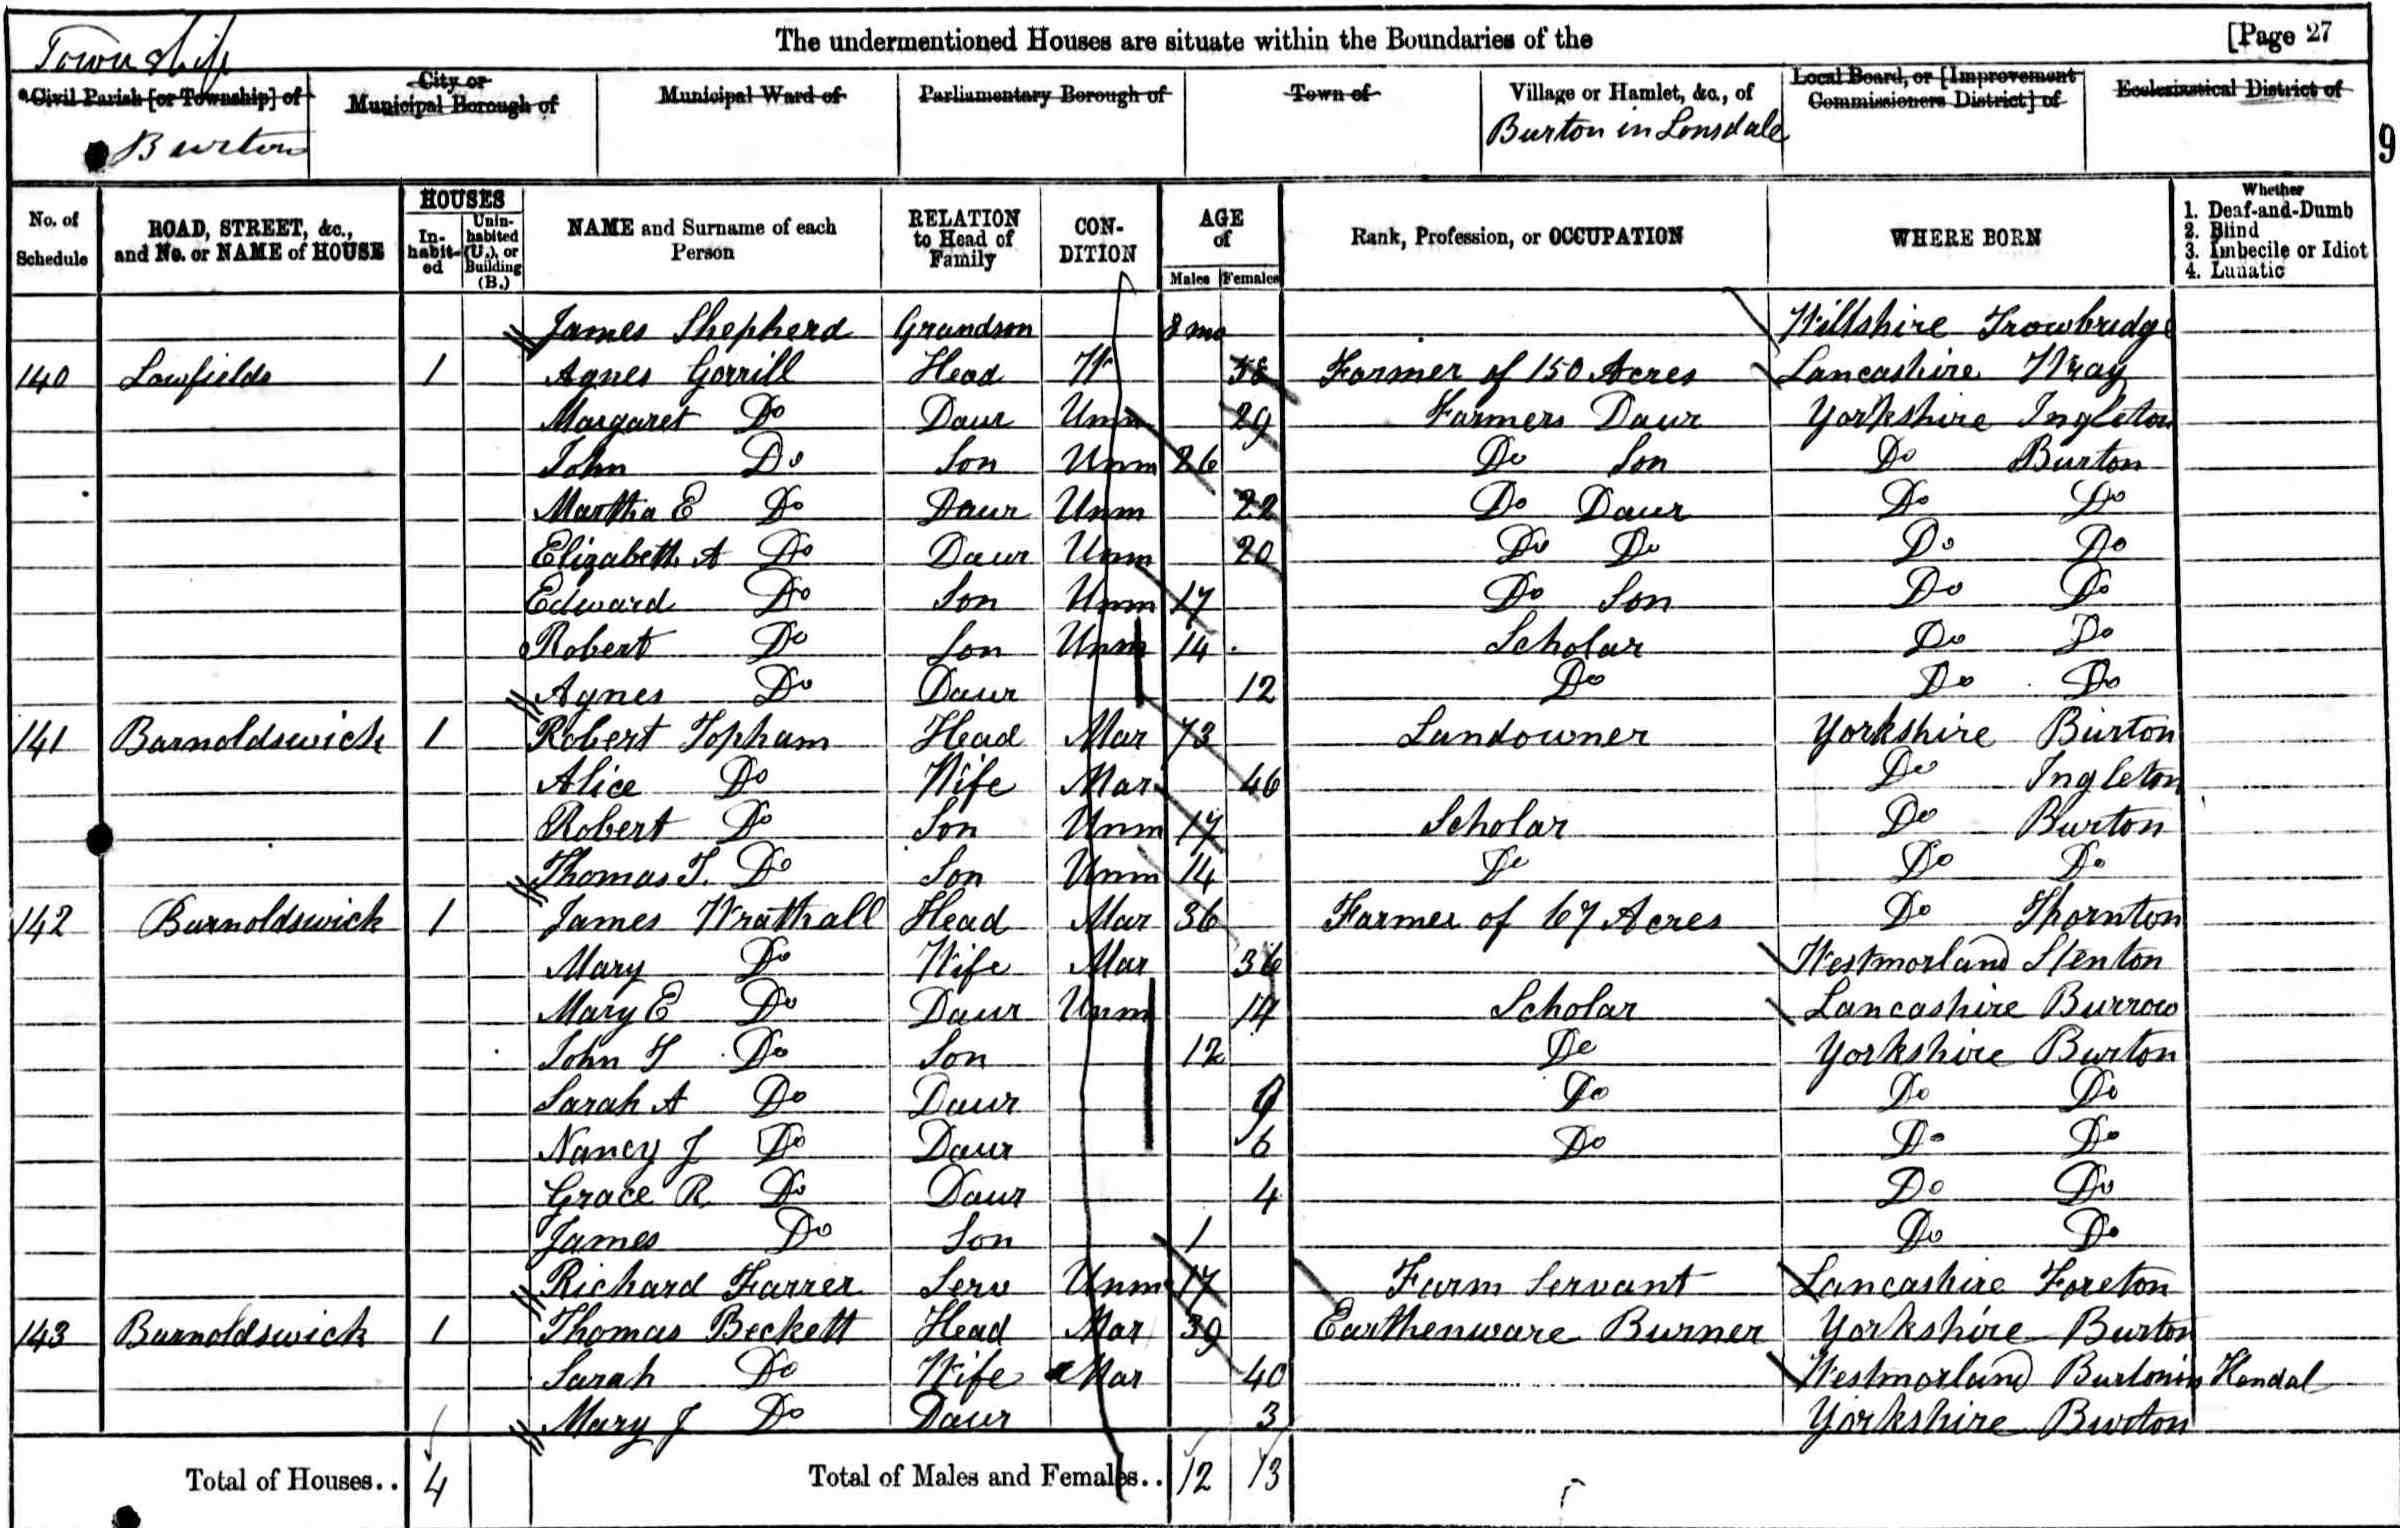 The undermentioned Houses are situate within the Boundaries of the [Page 27
Township
Civil Parish [or Township] of | City or Municipal Borough of | Municipal Ward of | Parliamentary Borough of | Town of | Village or Hamlet, &c., of | Local Board, or [Improvement Commissioners District] of | Ecclesiastical District of
Burton | Burton in Lonsdale
9
No. of Schedule | ROAD, STREET, &c., and No. or NAME of HOUSE | HOUSES Inhabited | Uninhabited (U.), or Building (B.) | NAME and Surname of each Person | RELATION to Head of Family | CONDITION | AGE of Males | Females | Rank, Profession, or OCCUPATION | WHERE BORN | Whether 1. Deaf-and-Dumb 2. Blind 3. Imbecile or Idiot 4. Lunatic
James Shepherd Grandson 8 mo Wiltshire Trowbridge
140 Lowfields 1 Agnes Gorrill Head W 58 Farmer of 150 Acres Lancashire Wray
Margaret Do Daur Unm 29 Farmers Daur Yorkshire Ingleton
John Do Son Unm 26 Do Son Do Burton
Martha E Do Daur Unm 22 Do Daur Do Do
Elizabeth A Do Daur Unm 20 Do Do Do Do
Edward Do Son Unm 17 Do Son Do Do
Robert Do Son Unm 14 Scholar Do Do
Agnes Do Daur 12 Do Do Do
141 Barnoldswick 1 Robert Topham Head Mar 73 Landowner Yorkshire Burton
Alice Do Wife Mar 46 Do Ingleton
Robert Do Son Unm 17 Scholar Do Burton
Thomas T. Do Son Unm 14 Do Do Do
142 Barnoldswick 1 James Wrathall Head Mar 36 Farmer of 67 Acres Do Thornton
Mary Do Wife Mar 36 Westmorland Stenton
Mary E Do Daur Unm 14 Scholar Lancashire Burrow
John T Do Son 12 Do Yorkshire Burton
Sarah A Do Daur 9 Do Do Do
Nancy J Do Daur 6 Do Do Do
Grace R Do Daur 4 Do Do
James Do Son 1 Do Do
Richard Farrer Serv Unm 17 Farm Servant Lancashire Foreton
143 Barnoldswick 1 Thomas Beckett Head Mar 39 Earthenware Burner Yorkshire Burton
Sarah Do Wife Mar 40 Westmorland Burton in Kendal
Mary J Do Daur 3 Yorkshire Burton
Total of Houses.. 4 Total of Males and Females.. 12 13